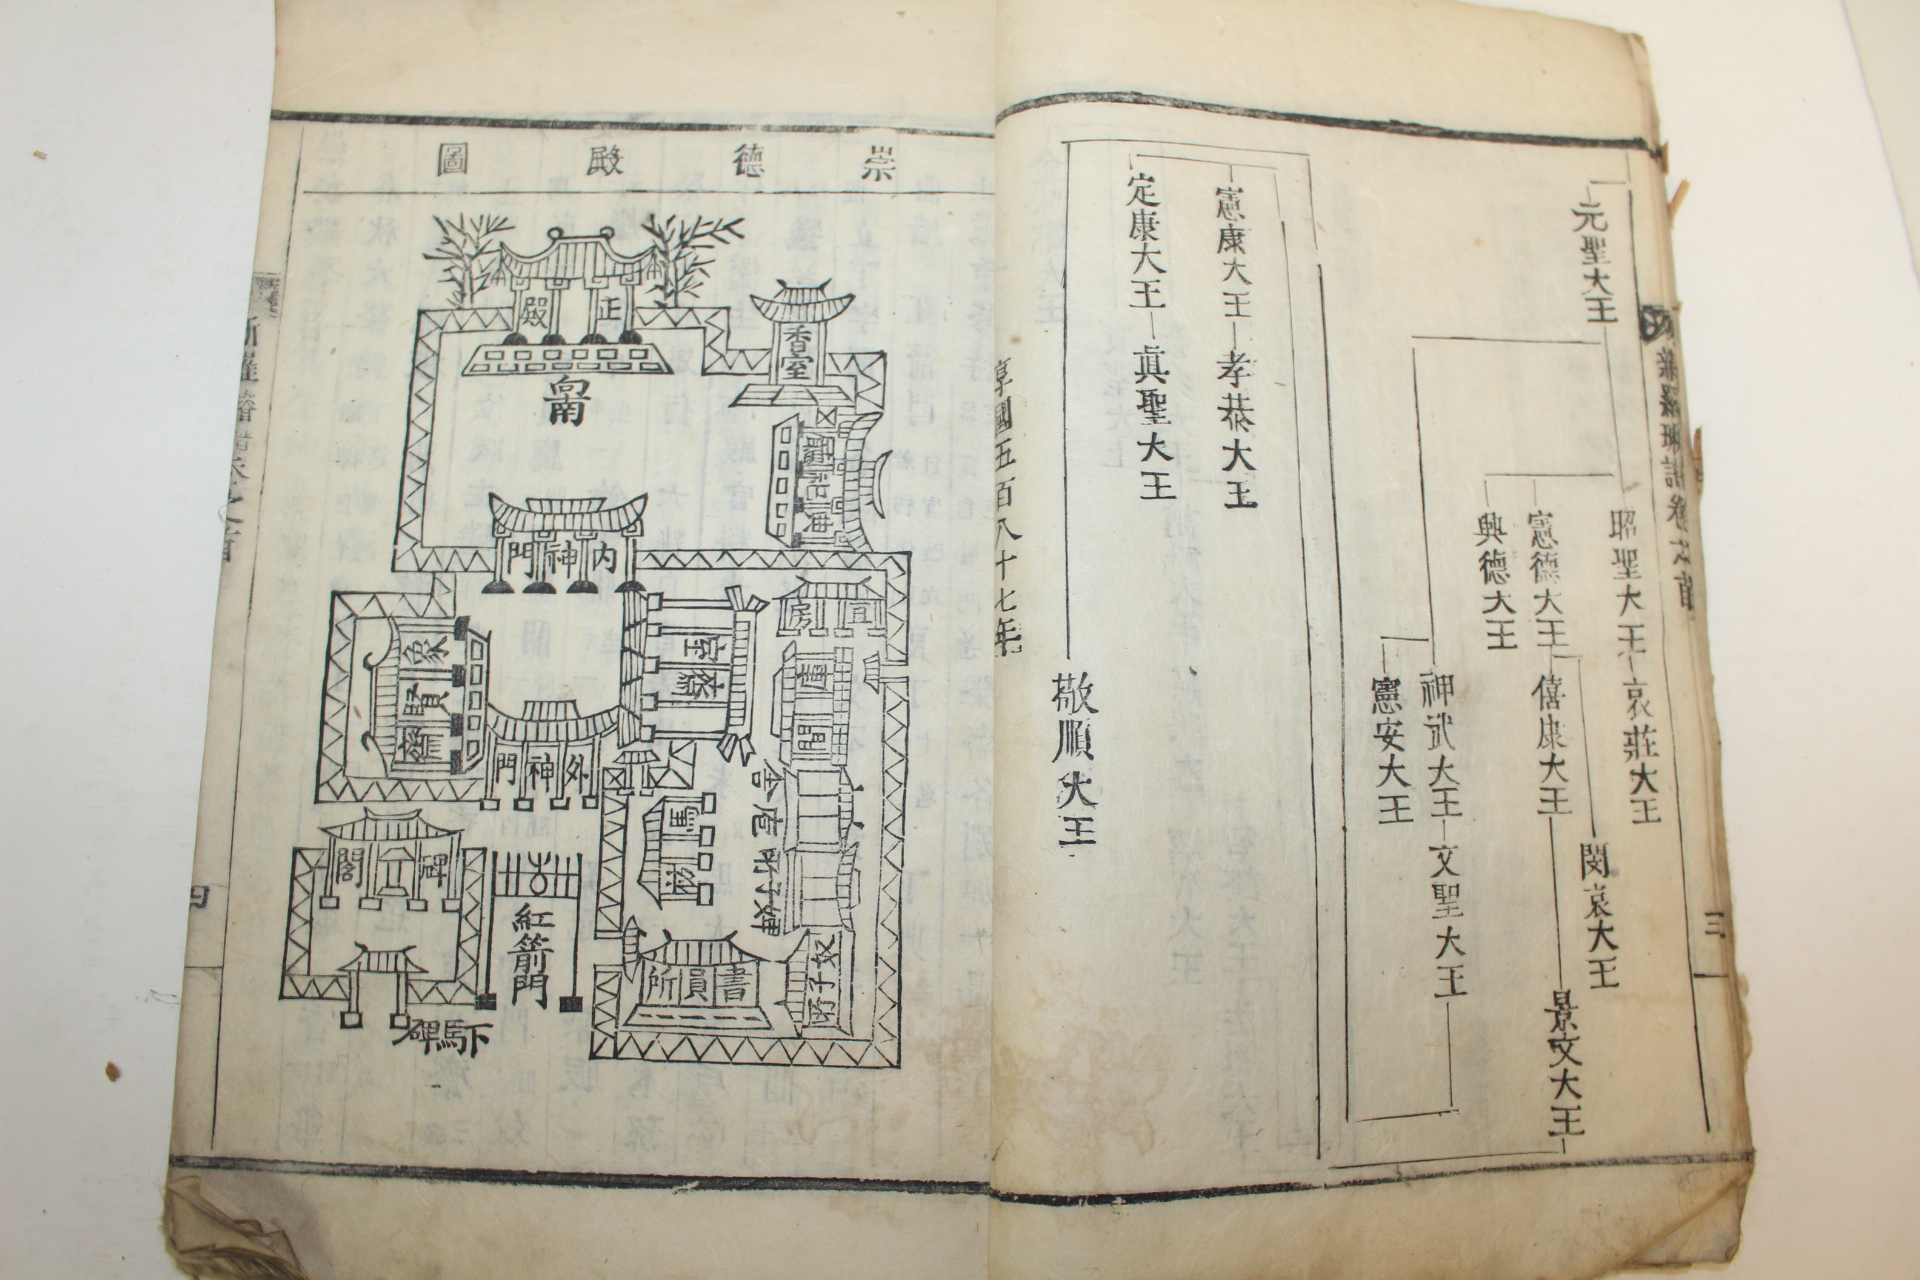 新羅璿譜卷之首
三
元聖大王
昭聖大王
哀莊大王
憲德大王
僖康大王
景文大王
閔哀大王
興德大王
神武大王
文聖大王
憲安大王
憲康大王
孝恭大王
定康大王
眞聖大王
敬順大王
享國五百八十七年
崇德殿圖
正殿
香室
向南
內神門
象賢齋
外神門
庫間
馬廐
紅箭門
碑閣
書員所
下馬碑
新羅璿譜卷之首
四